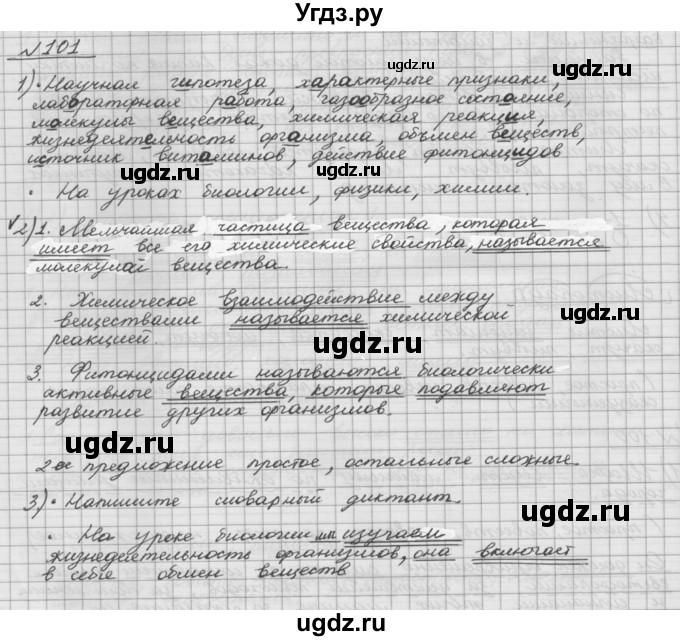 Угдз.ру
№101
1) • Научная гипотеза, характерные признаки,
лабораторная работа, газообразное состояние,
молекулы вещества, химическая реакция,
жизнедеятельность организма, обмен веществ,
источник витаминов, действие фитонцидов
ugdz.ru ugdz.ru
• На уроках биологии, физики, химии.
2) 1. Мельчайшая частица вещества, которая
имеет все его химические свойства, называется
молекулой вещества.
ugdz.ru ugdz.ru
2. Химическое взаимодействие между
веществами называется химической
реакцией.
ugdz.ru ugdz.ru
3. Фитонцидами называются биологически
активные вещества, которые подавляют
развитие других организмов.
ugdz.ru ugdz.ru
2ое предложение простое, остальные сложные.
3) • Напишите словарный диктант.
ugdz.ru ugdz.ru
• На уроке биологии мы изучаем
жизнедеятельность организмов, она включает
в себя обмен веществ
ugdz.ru ugdz.ru